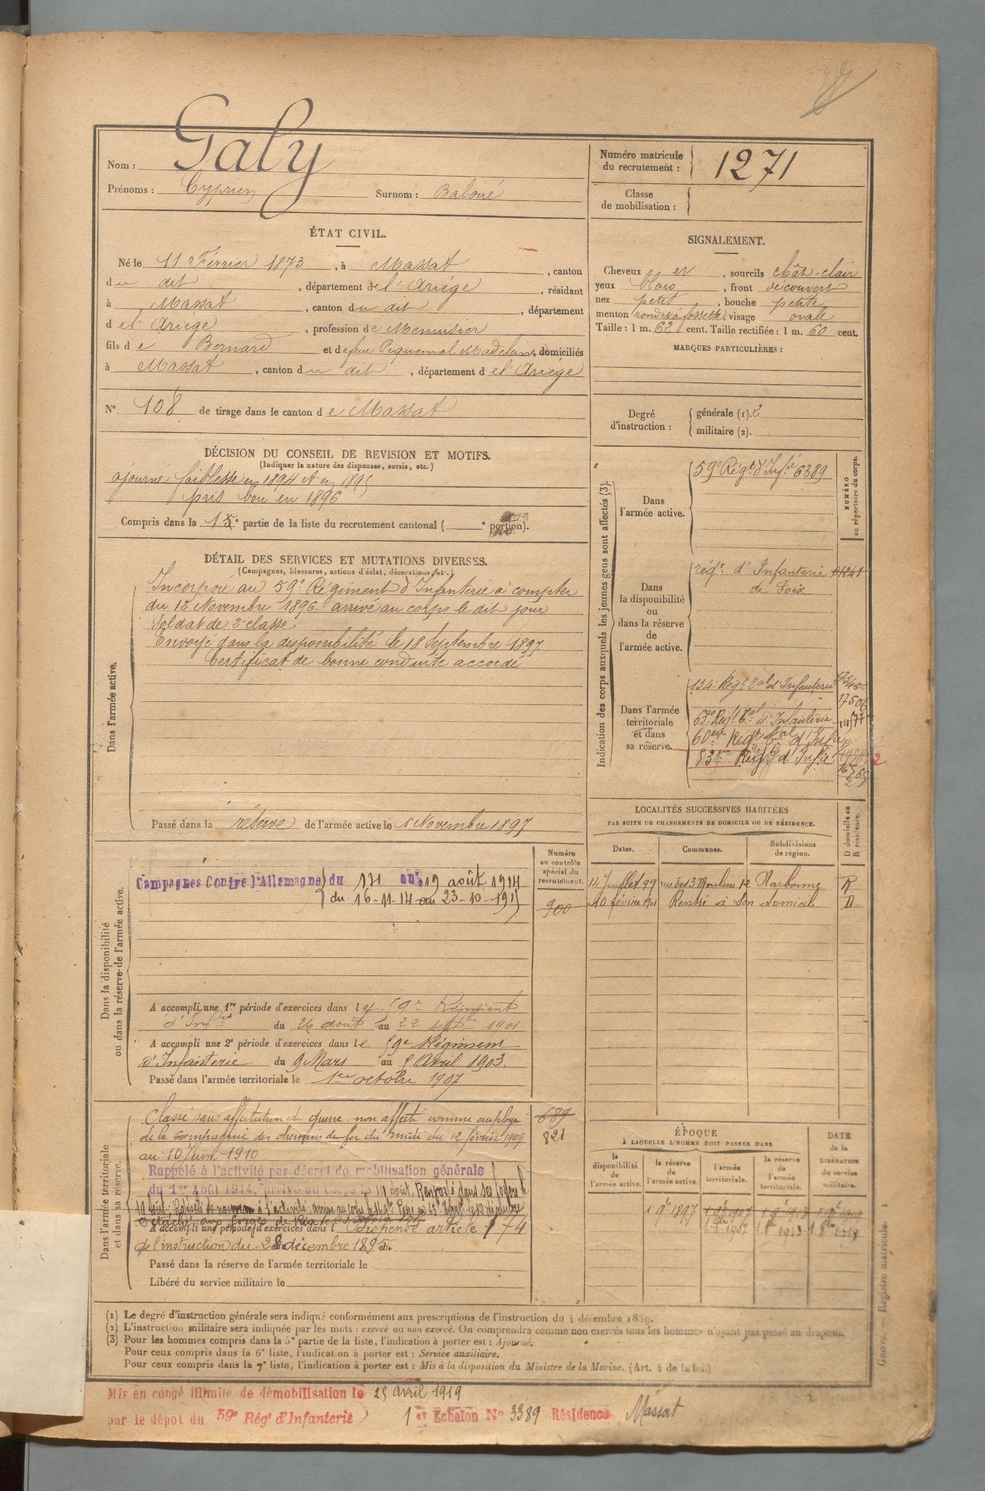 Nom : Galy
Prénoms : Cyprien Surnom : Baloué
Numéro matricule du recrutement : 1271
Classe de mobilisation :
ÉTAT CIVIL.
Né le 11 Février 1873, à Massat, canton
du dit, département de l'Ariège, résidant
à Massat, canton du dit, département
d el' Ariège, profession de Menuisier
fils de Bernard et de feue Piquemal Madelaine, domiciliés
à Massat, canton du dit, département d el' Ariège
N° 108 de tirage dans le canton de Massat
SIGNALEMENT.
Cheveux et, sourcils chât-clair
yeux bleus, front découvert
nez petit, bouche petite
menton rond à fossette, visage ovale
Taille : 1 m. 62 cent. Taille rectifiée : 1 m. 60 cent.
MARQUES PARTICULIÈRES :
Degré d'instruction : générale (1). 2
militaire (2).
DÉCISION DU CONSEIL DE REVISION ET MOTIFS.
(Indiquer la nature des dispenses, sursis, etc.)
ajourné faiblesse en 1894 et en 1895
pris bon en 1896
Compris dans la partie de la liste du recrutement cantonal ( portion).
DÉTAIL DES SERVICES ET MUTATIONS DIVERSES.
(Campagnes, blessures, actions d'éclat, décorations, etc.)
Dans l'armée active.
Incorporé au 59e Régiment d'Infanterie à compter
du 12 Novembre 1896 arrivé au corps le dit jour
Soldat de 2e classe
Envoyé dans la disponibilité le 18 Septembre 1897
Certificat de bonne conduite accordé
Passé dans la réserve de l'armée active le 1 Novembre 1897
Indication des corps auxquels les jeunes gens sont affectés (3).
NUMÉRO au répertoire du corps.
Dans l'armée active.
59e Régt d'Infie 6389
Dans la disponibilité ou dans la réserve de l'armée active.
régt d'Infanterie
de Foix
Dans l'armée territoriale et dans sa réserve.
134 Régt tal d'Infanterie
Régt tal d'Infanterie
60 Régt tal d'Infie
83 Régt d'Infie
LOCALITÉS SUCCESSIVES HABITÉES
PAR SUITE DE CHANGEMENTS DE DOMICILE OU DE RÉSIDENCE.
Dates. Communes. Subdivisions de région. D domicile ou R résidence.
14 Juillet 99 rue des 3 Moulins 12 Narbonne R
10 février 1901 Rentré à son domicile D
Dans la disponibilité ou dans la réserve de l'armée active.
Numéro au contrôle spécial du recrutement.
900
Campagnes Contre l'Allemagne du au 19 août 1914
du 16-11-14 au 23-10-191
A accompli une 1re période d'exercices dans le 59e Régiment
d'Infie du 26 août au 22 sept 1901
A accompli une 2e période d'exercices dans le 59e Régiment
d'Infanterie du 9 Mars au 5 Avril 1903.
Passé dans l'armée territoriale le 1er octobre 1907
Dans l'armée territoriale et dans sa réserve.
689
821
Classé sans affectation de guerre non affecté comme employé
de la Compagnie des chemins de fer du midi du 12 février 1909
au 10 Juin 1910
Rappelé à l'activité par décret de mobilisation générale
du 1er Août 1914, arrivé au corps le 19 août. Renvoyé dans ses foyers
A accompli une période d'exercices dans l Dispensé article 174
de l'instruction du 28 décembre 1895
Passé dans la réserve de l'armée territoriale le
Libéré du service militaire le
ÉPOQUE
À LAQUELLE L'HOMME DOIT PASSER DANS
la disponibilité de l'armée active. la réserve de l'armée active. l'armée territoriale. la réserve de l'armée territoriale.
DATE de la LIBÉRATION du service militaire.
(1) Le degré d'instruction générale sera indiqué conformément aux prescriptions de l'instruction du 4 décembre 1889.
(2) L'instruction militaire sera indiquée par les mots : exercé ou non exercé. On comprendra comme non exercés tous les hommes n'ayant pas passé au drapeau.
(3) Pour les hommes compris dans la 5e partie de la liste, l'indication à porter est : Ajourné.
Pour ceux compris dans la 6e liste, l'indication à porter est : Service auxiliaire.
Pour ceux compris dans la 7e liste, l'indication à porter est : Mis à la disposition du Ministre de la Marine. (Art. 4 de la loi.)
Guerre. — Registre matricule.
Mis en congé illimité de démobilisation le 25 avril 1919
par le dépôt du 59e Rég d'Infanterie 1er Echelon N° 3389 Résidence Massat